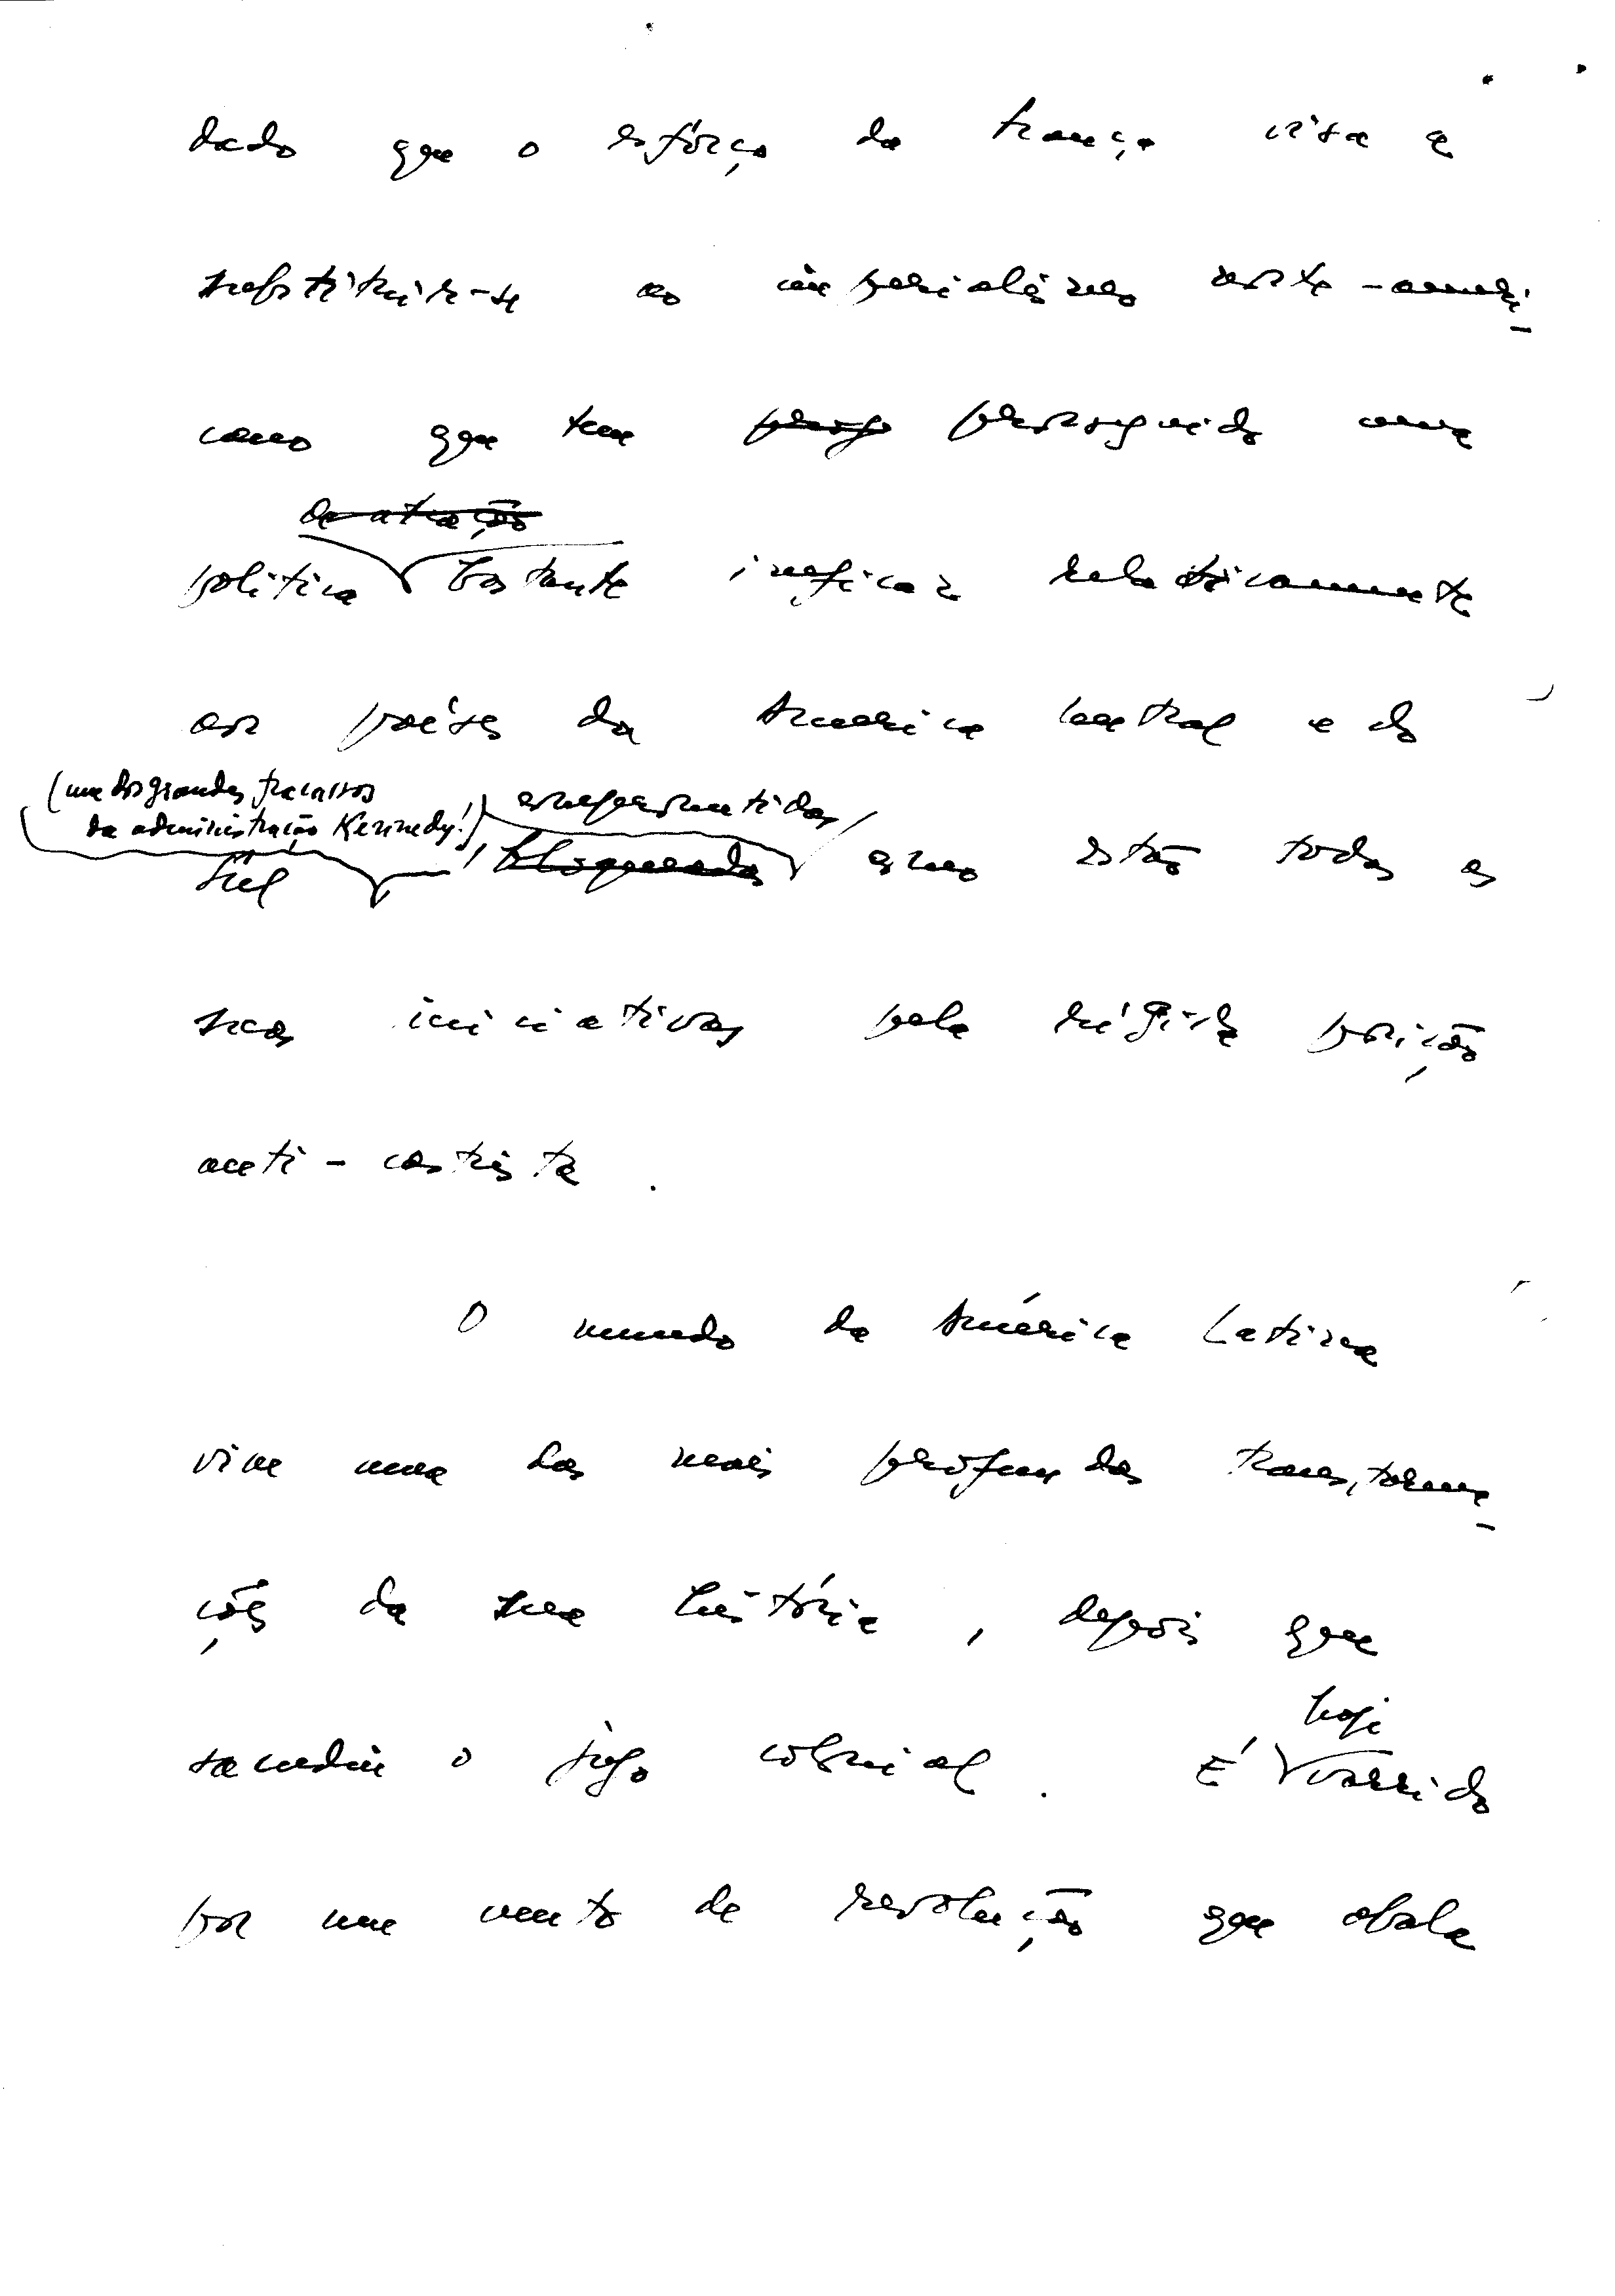 dado que o esfôrço da França visa a
substituir-se ao imperialismo norte-ameri-
cano que tem perseguido uma
de atração
política bastante ineficaz relativamente
aos países da America Central e do
(um dos grandes fracassos
da administração Kennedy!)
comprometidas
Sul, bloqueadas como estão todas as
suas iniciativas pela rígida posição
anti-castrista.
O mundo da América Latina
vive uma das mais profundas transforma-
ções da sua história, depois que
hoje
sacudiu o jugo colonial. É varrido
por um vento de revolução que abala